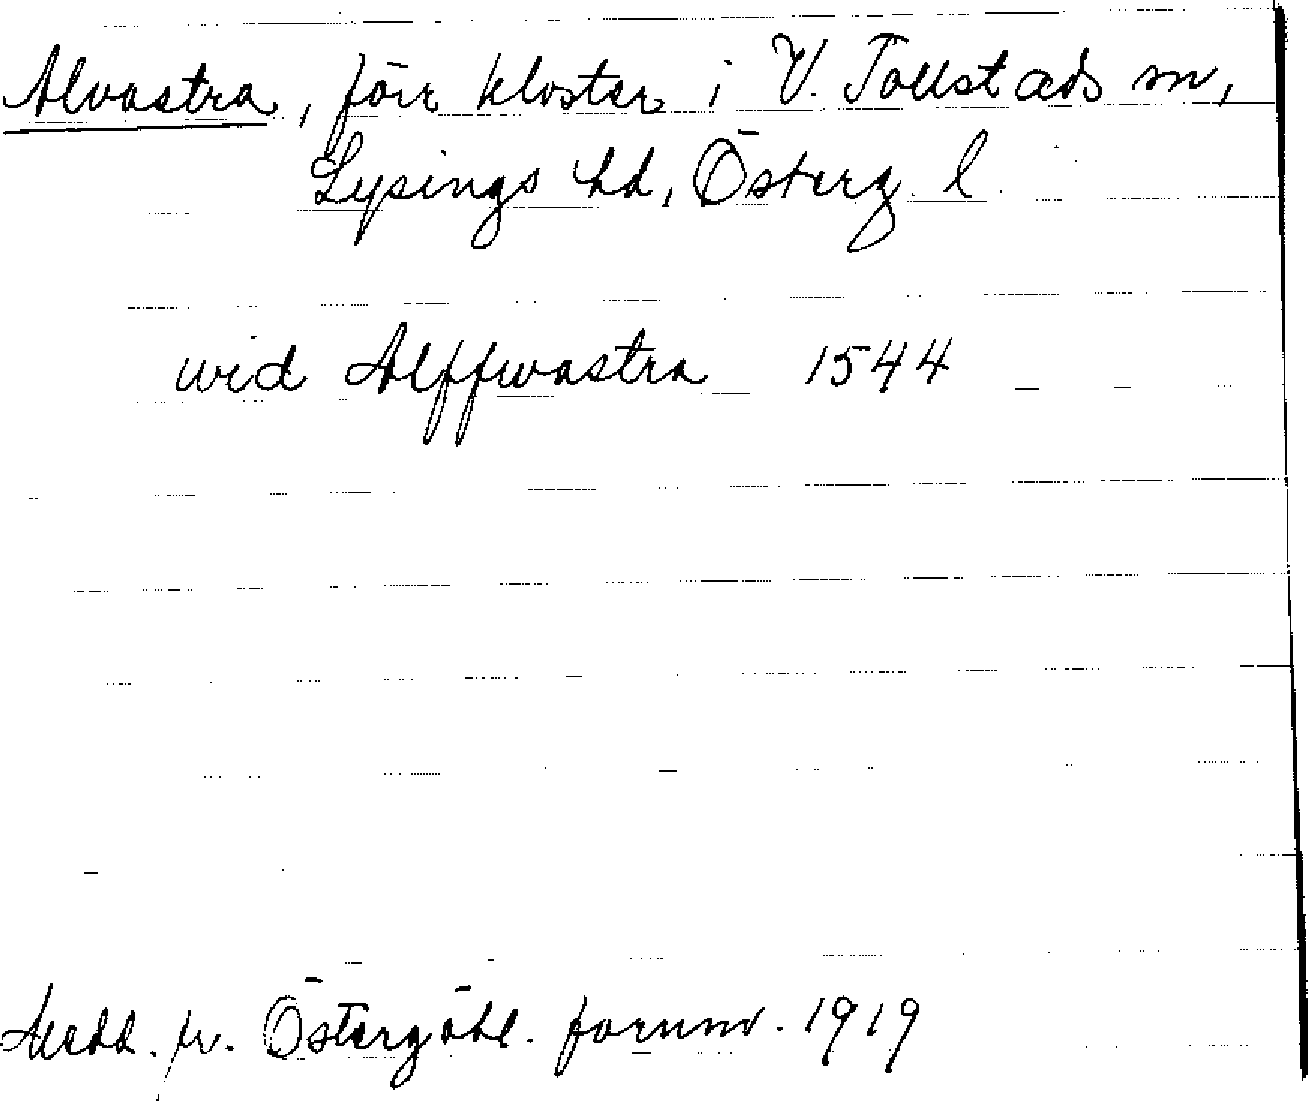 Alvastra, förr kloster i V. Tollstads sn,
Lysings hd, Österg. l.
wid Alffwastra 1544
Medd. fr. Östergötl. fornmv. 1919